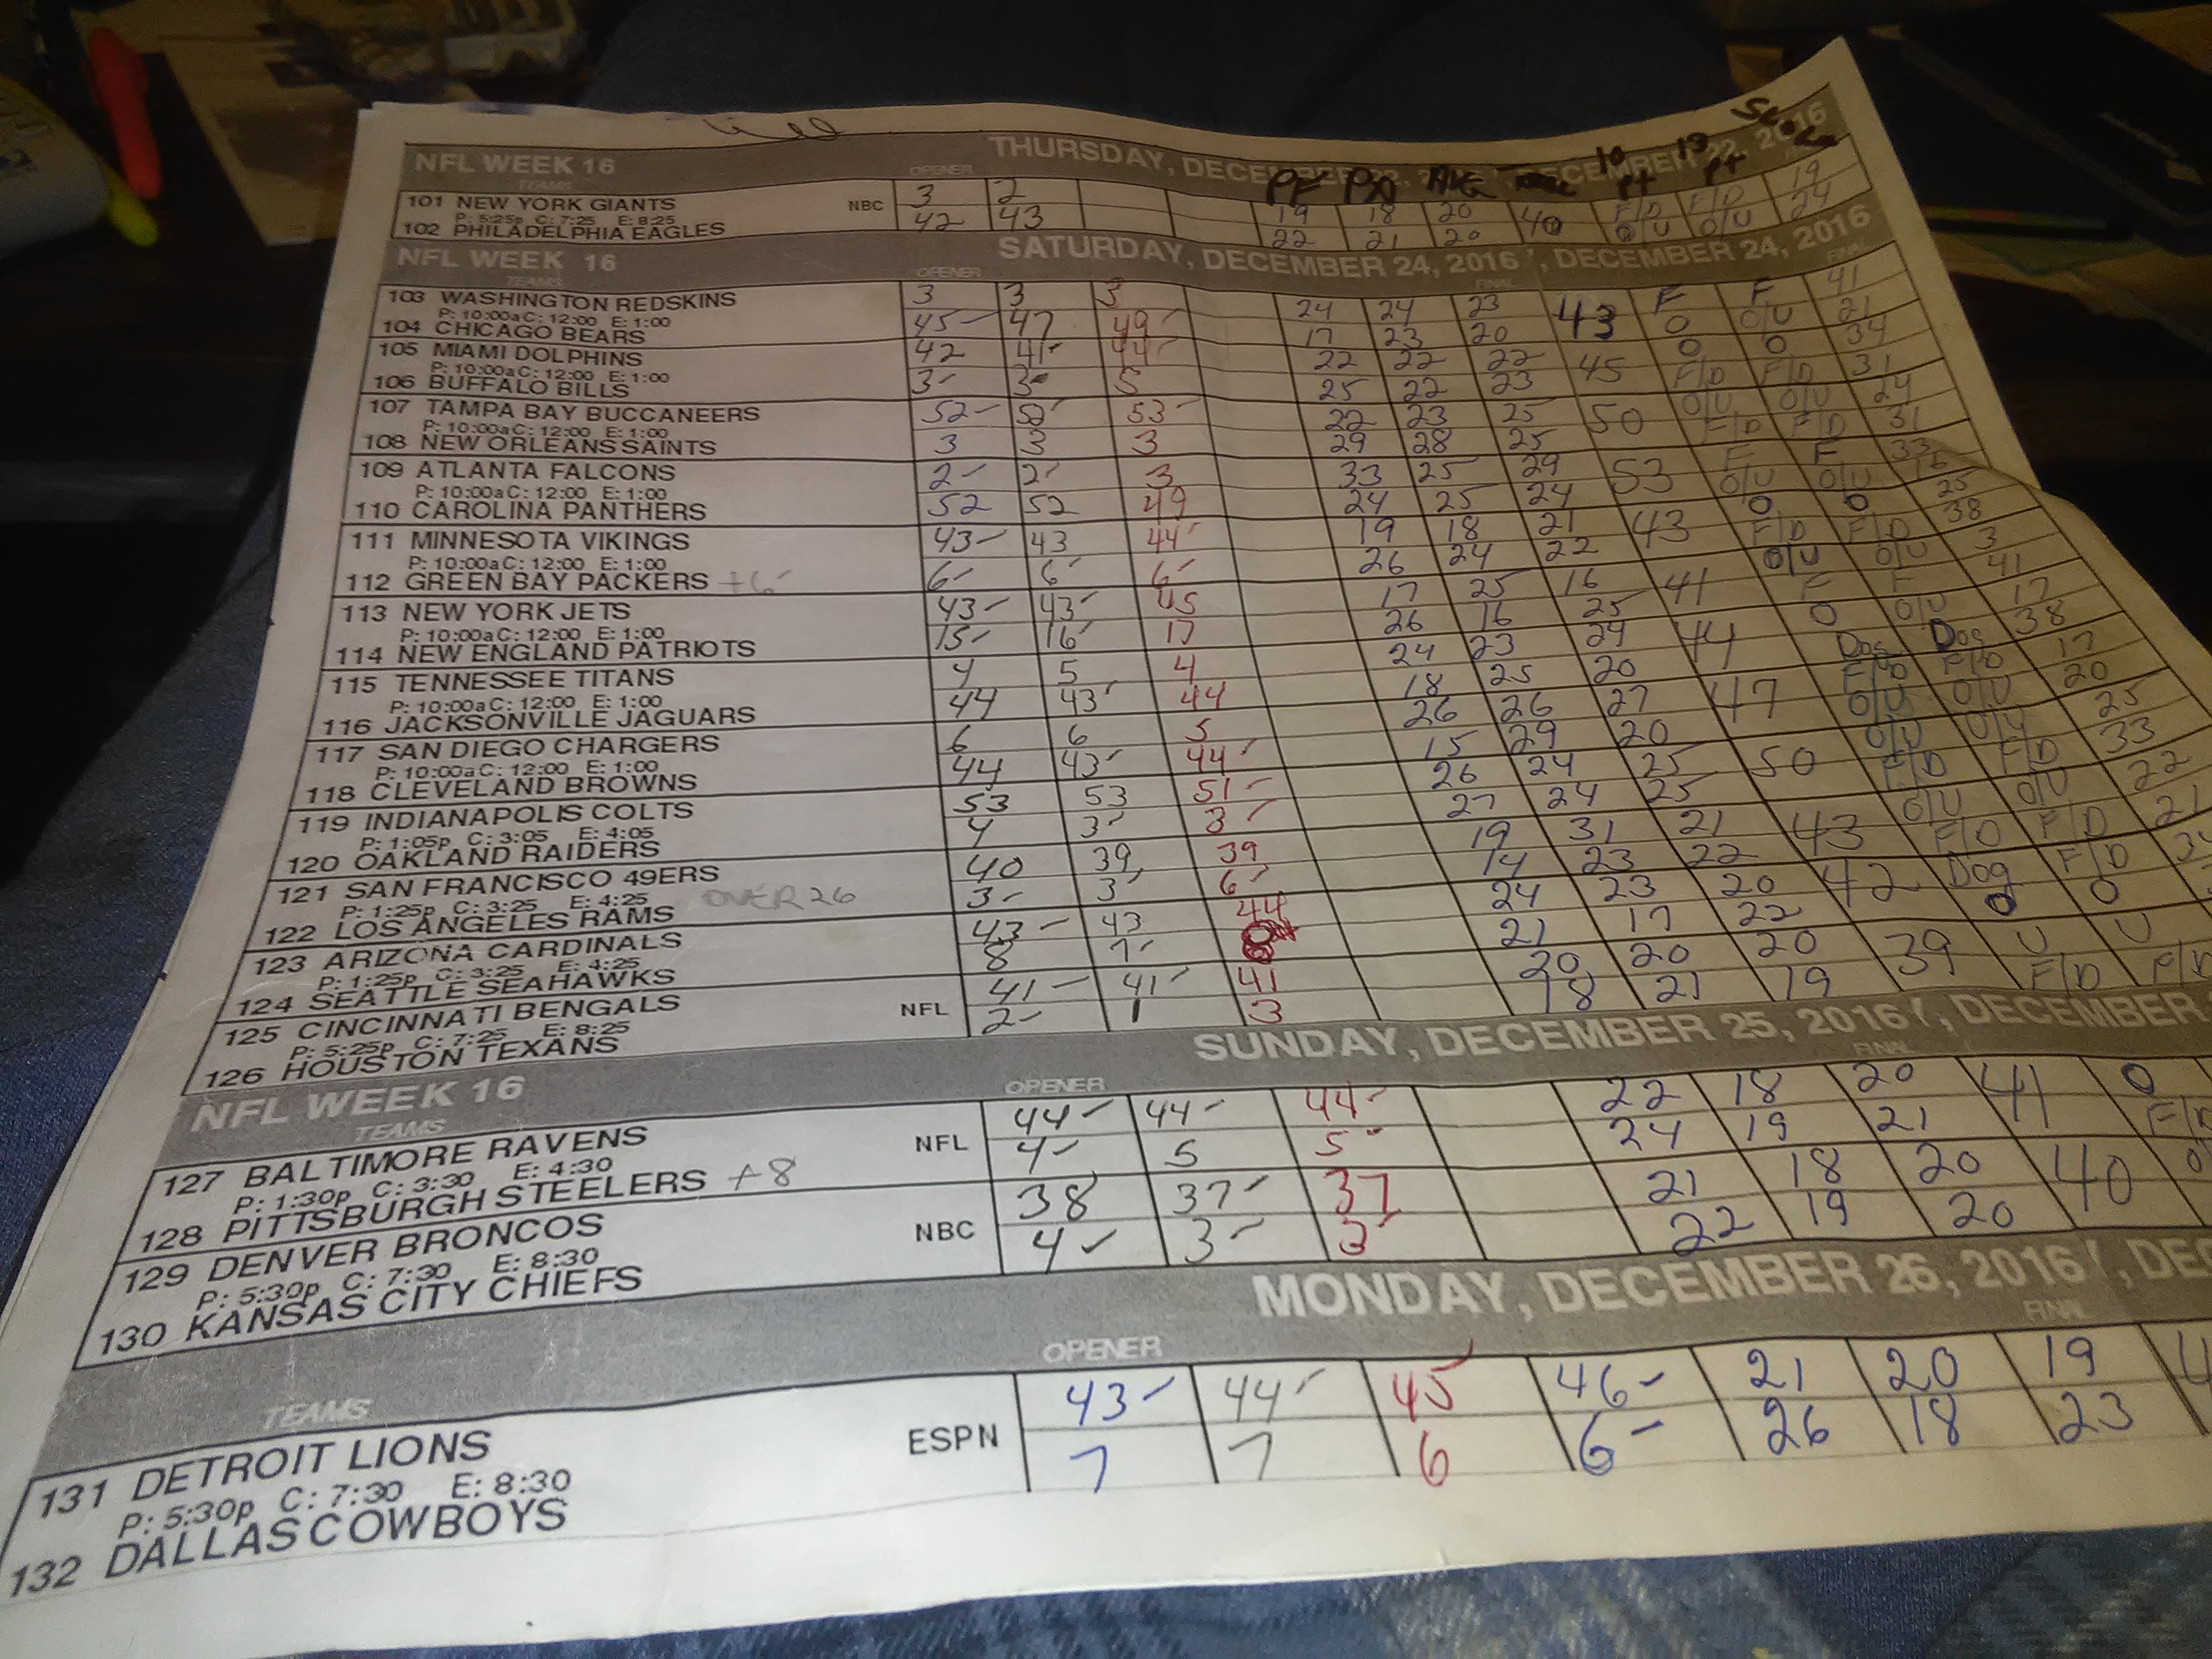 NFL WEEK 16 THURSDAY, DECEMBER 22, 2016
TEAMS OPENER PF PA AVG 10 pt 13 pt
101 NEW YORK GIANTS NBC 3 2 19 18 20 40 F/D F/D 19
P: 5:25p C: 7:25 E: 8:25
102 PHILADELPHIA EAGLES 42 43 22 21 20 O/U O/U 24
NFL WEEK 16 SATURDAY, DECEMBER 24, 2016 , DECEMBER 24, 2016
TEAMS OPENER FINAL FINAL
103 WASHINGTON REDSKINS 3 3 3 24 24 23 43 F F 41
P: 10:00a C: 12:00 E: 1:00
104 CHICAGO BEARS 45- 47 49- 17 23 20 O O/U 21
105 MIAMI DOLPHINS 42 41- 44- 22 22 22 45 O O 34
P: 10:00a C: 12:00 E: 1:00
106 BUFFALO BILLS 3- 3- 5 25 22 23 F/D F/D 31
107 TAMPA BAY BUCCANEERS 52- 52- 53- 22 23 25 50 O/U O/U 24
P: 10:00a C: 12:00 E: 1:00
108 NEW ORLEANS SAINTS 3 3 3 29 28 25 F/D F/D 31
109 ATLANTA FALCONS 2- 2- 3 33 25 29 53 F F 33
P: 10:00a C: 12:00 E: 1:00
110 CAROLINA PANTHERS 52 52 49 24 25 24 O/U O/U 16
111 MINNESOTA VIKINGS 43- 43 44- 19 18 21 43 O O 25
P: 10:00a C: 12:00 E: 1:00
112 GREEN BAY PACKERS +6- 6- 6- 6- 26 24 22 F/D F/D 38
113 NEW YORK JETS 43- 43- 45 17 25 16 41 O/U O/U 3
P: 10:00a C: 12:00 E: 1:00
114 NEW ENGLAND PATRIOTS 15- 16- 17 26 16 25 F F 41
115 TENNESSEE TITANS 4 5 4 24 23 24 44 O O/U 17
P: 10:00a C: 12:00 E: 1:00
116 JACKSONVILLE JAGUARS 44 43- 44 18 25 20 Dog Dog 38
117 SAN DIEGO CHARGERS 6 6 5 26 26 27 47 F/D F/D 17
P: 10:00a C: 12:00 E: 1:00
118 CLEVELAND BROWNS 44 43- 44- 15 29 20 O/U O/U 20
119 INDIANAPOLIS COLTS 53 53 51- 26 24 25 50 O/U O/U 25
P: 1:05p C: 3:05 E: 4:05
120 OAKLAND RAIDERS 4 3- 3- 27 24 25 F/D F/D 33
121 SAN FRANCISCO 49ERS 40 39, 39 19 31 21 43 O/U O/U 22
P: 1:25p C: 3:25 E: 4:25 OVER 26
122 LOS ANGELES RAMS 3- 3- 6- 14 23 22 F/D F/D 21
123 ARIZONA CARDINALS 43- 43 44 24 23 20 42 Dog F/D
P: 1:25p C: 3:25 E: 4:25
124 SEATTLE SEAHAWKS 8 7- 21 17 22 O O
125 CINCINNATI BENGALS NFL 41- 41- 41 20 20 20 39 U U
P: 5:25p C: 7:25 E: 8:25
126 HOUSTON TEXANS 2- 1 3 18 21 19 F/D F/D
NFL WEEK 16 SUNDAY, DECEMBER 25, 2016 , DECEMBER
TEAMS OPENER FINAL
127 BALTIMORE RAVENS NFL 44- 44- 44- 22 18 20 41 O
P: 1:30p C: 3:30 E: 4:30
128 PITTSBURGH STEELERS +8 4- 5 5- 24 19 21
129 DENVER BRONCOS NBC 38 37- 37 21 18 20 40
P: 5:30p C: 7:30 E: 8:30
130 KANSAS CITY CHIEFS 4- 3- 3- 22 19 20
MONDAY, DECEMBER 26, 2016
TEAMS OPENER FINAL
131 DETROIT LIONS ESPN 43- 44- 45 46- 21 20 19
P: 5:30p C: 7:30 E: 8:30
132 DALLAS COWBOYS 7 7 6 6- 26 18 23